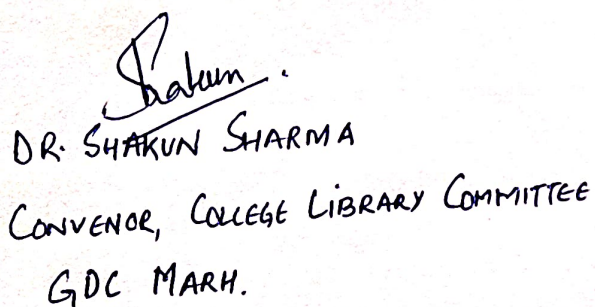 Shakun.
DR. SHAKUN SHARMA
CONVENOR, COLLEGE LIBRARY COMMITTEE
GDC MARH.